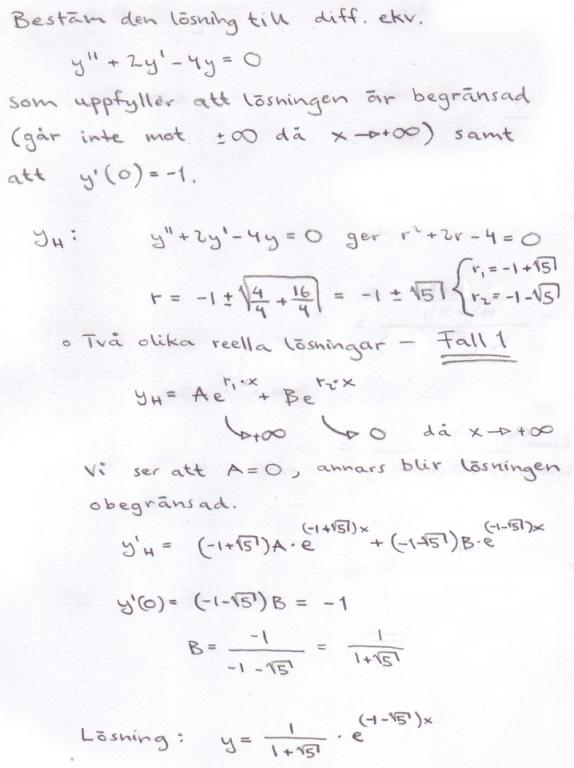 Bestäm den lösning till diff. ekv.
y'' + 2y' - 4y = 0
som uppfyller att lösningen är begränsad
(går inte mot ±∞ då x → +∞) samt
att y'(0) = -1.
y_H: y'' + 2y' - 4y = 0 ger r² + 2r - 4 = 0
r = -1 ± √(4/4 + 16/4) = -1 ± √5 { r₁ = -1 + √5
r₂ = -1 - √5
∘ Två olika reella lösningar - Fall 1
y_H = Ae^(r₁·x) + Be^(r₂·x)
↳ +∞ ↳ 0 då x → +∞
Vi ser att A = 0, annars blir lösningen
obegränsad.
y'_H = (-1+√5)A·e^((-1+√5)x) + (-1-√5)B·e^((-1-√5)x)
y'(0) = (-1-√5)B = -1
B = -1/(-1-√5) = 1/(1+√5)
Lösning: y = 1/(1+√5) · e^((-1-√5)x)